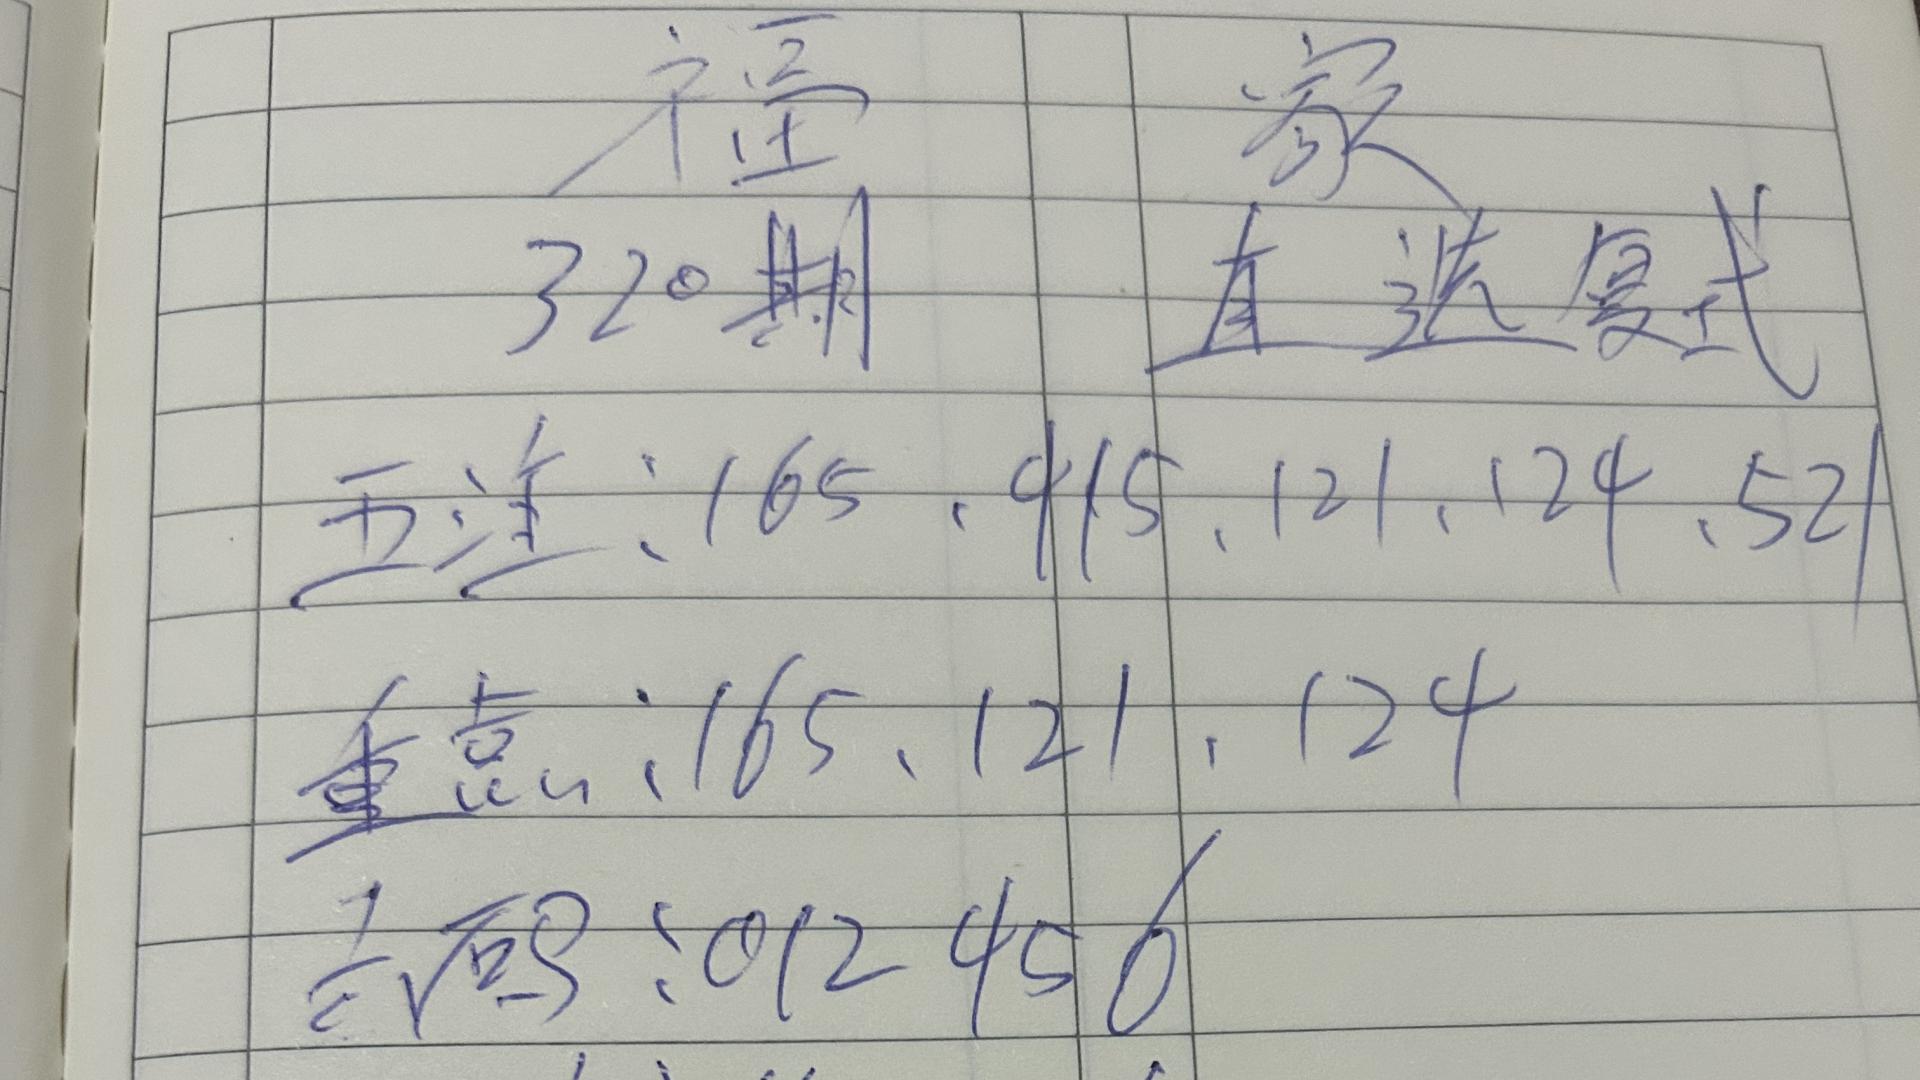 福 家
320期 直选复式
五注:165、415、121、124、521
重点:165、121、124
六码:012456